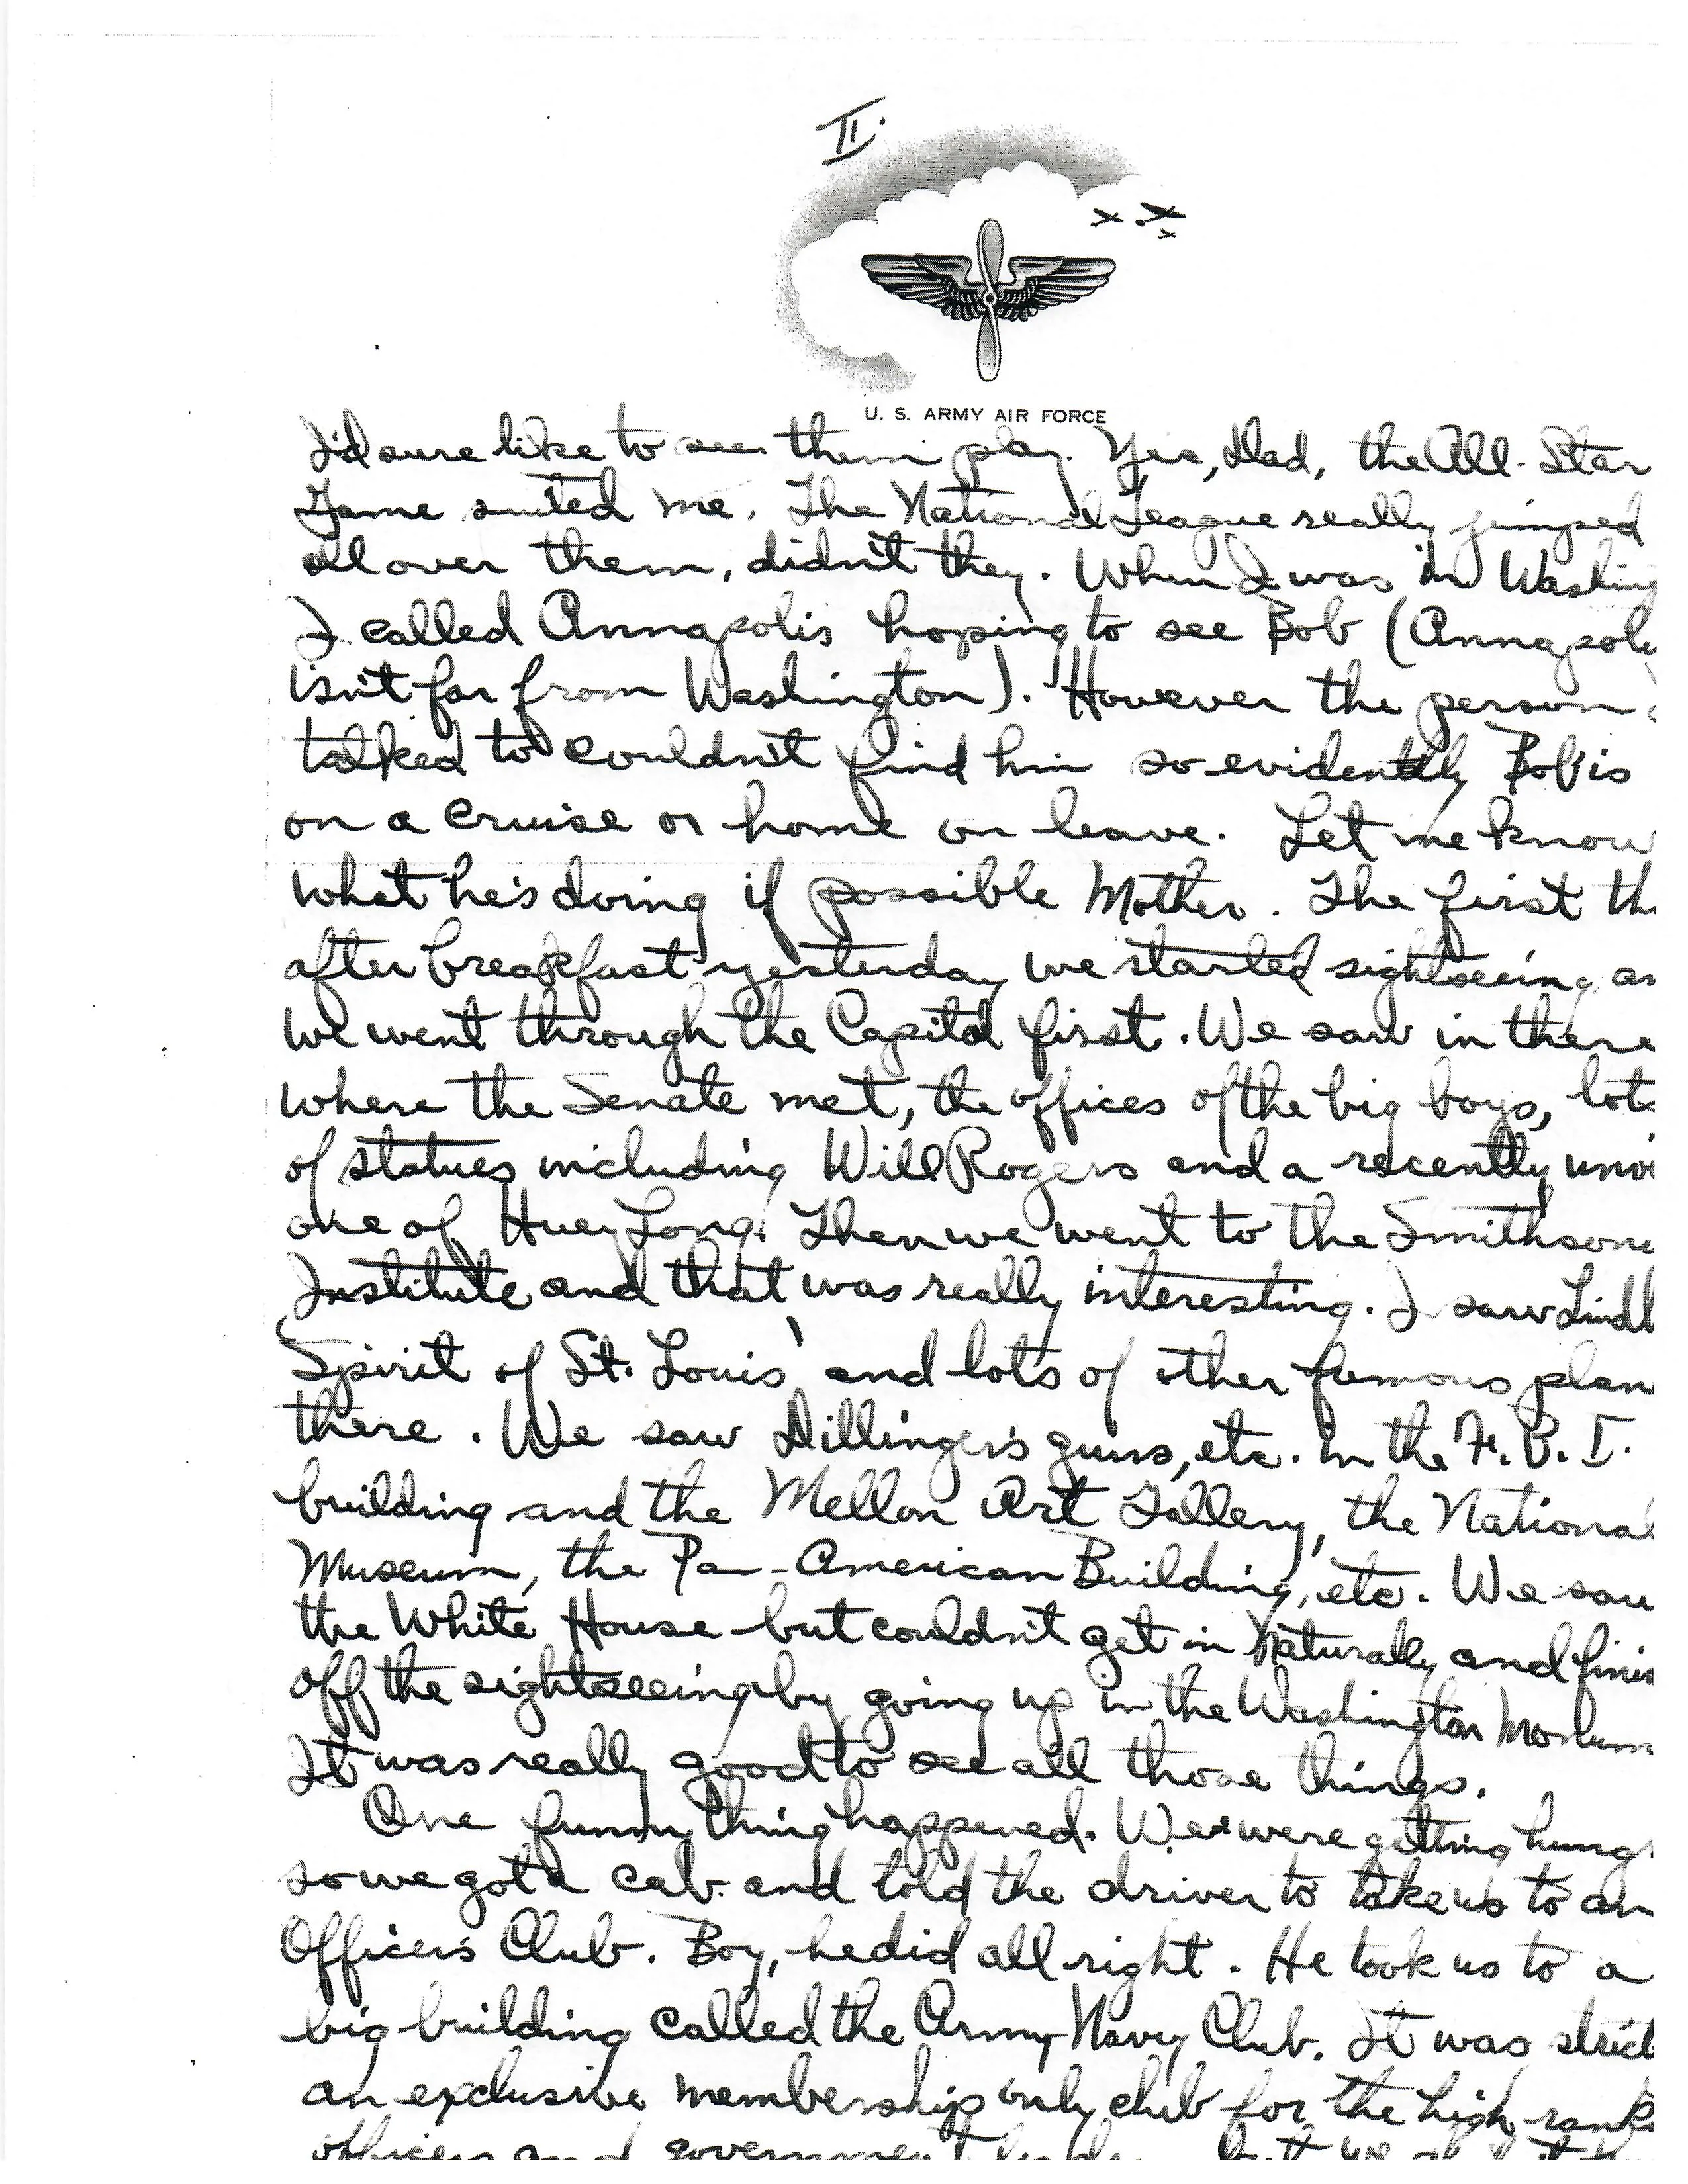 II.
U. S. ARMY AIR FORCE
I'd sure like to see them play. Yes, Dad, the All-Star
Game suited me. The National League really jumped
all over them, didn't they. When I was in Washing
I called Annapolis hoping to see Bob (Annapoli
isn't far from Washington). However the person
talked to couldn't find him so evidently Bob is
on a cruise or home on leave. Let me know
what he's doing if possible Mother. The first th
after breakfast yesterday we started sightseeing an
we went through the Capitol first. We saw in there
where the Senate met, the offices of the big boys, lots
of statues including Will Rogers and a recently unve
one of Huey Long. Then we went to the Smithsoni
Institute and that was really interesting. I saw Lindb
'Spirit of St. Louis' and lots of other famous plan
there. We saw Dillinger's guns, etc. in the F. B. I.
building and the Mellon Art Gallery, the National
Museum, the Pan-American Building, etc. We saw
the White House but couldn't get in naturally and finis
off the sightseeing by going up in the Washington Monum
It was really good to see all those things.
One funny thing happened. We were getting hung
so we got a cab and told the driver to take us to an
Officer's Club. Boy, he did all right. He took us to a
big building called the Army-Navy Club. It was strict
an exclusive membership only club for the high rank
officers and government but we